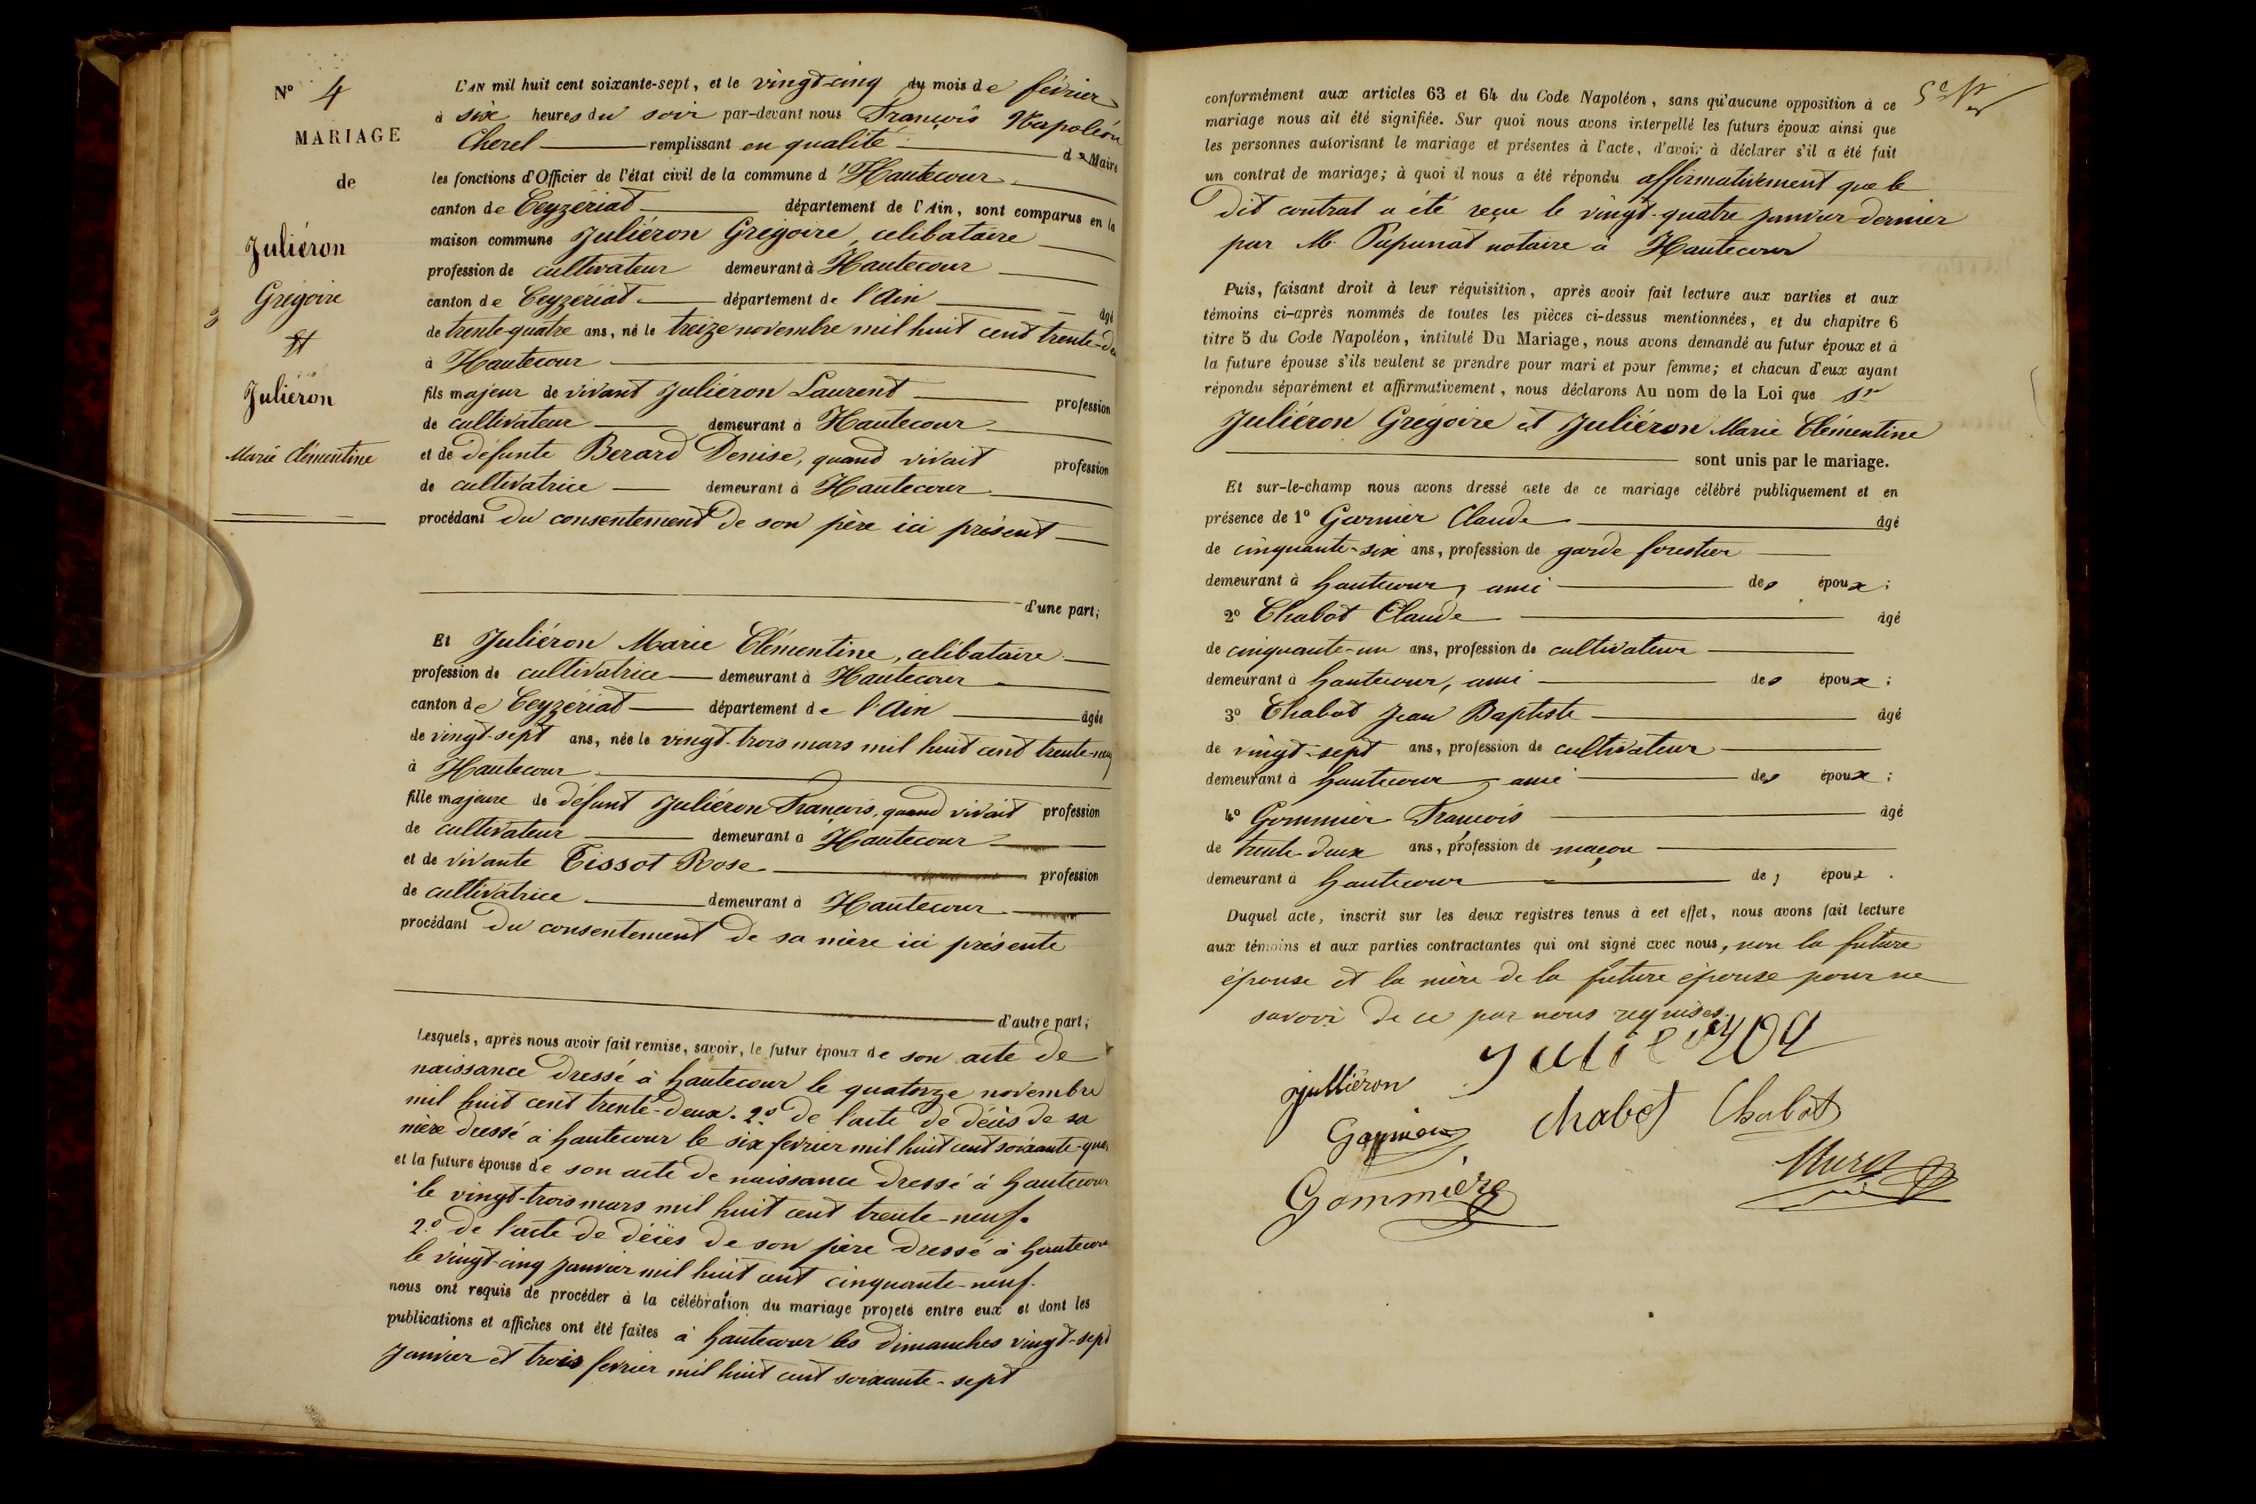 N° 4
MARIAGE
de
Juliéron
Grégoire
et
Juliéron
Marie Clémentine
L'AN mil huit cent soixante-sept, et le vingt-cinq du mois de février
à six heures du soir par-devant nous François Napoléon
Cherel remplissant en qualité de Maire
les fonctions d'Officier de l'état civil de la commune d'Hautecour
canton de Ceyzériat département de l'Ain, sont comparus en la
maison commune Juliéron Grégoire, celibataire
profession de cultivateur demeurant à Hautecour
canton de Ceyzériat département de l'Ain âgé
de trente-quatre ans, né le treize novembre mil huit cent trente-de
à Hautecour
fils majeur de vivant Juliéron Laurent profession
de cultivateur demeurant à Hautecour
et de défunte Berard Denise, quand vivait profession
de cultivatrice demeurant à Hautecour
procédant du consentement de son père ici présent
d'une part;
Et Juliéron Marie Clémentine, célibataire
profession de cultivatrice demeurant à Hautecour
canton de Ceyzériat département de l'Ain âgée
de vingt-sept ans, née le vingt-trois mars mil huit cent trente-neuf
à Hautecour
fille majeure de défunt Juliéron François, quand vivait profession
de cultivateur demeurant à Hautecour
et de vivante Tissot Rose profession
de cultivatrice demeurant à Hautecour
procédant du consentement de sa mère ici présente
d'autre part;
Lesquels, après nous avoir fait remise, savoir, le futur époux de son acte de
naissance dressé à hautecour le quatorze novembre
mil huit cent trente-deux. 2° de l'acte de décès de sa
mère dressé à hautecour le six fevrier mil huit cent soixante-qua
et la future épouse de son acte de naissance dressé à hautecour
le vingt-trois mars mil huit cent trente-neuf.
2° de l'acte de décès de son père dressé à hautecour
le vingt-cinq janvier mil huit cent cinquante-neuf.
nous ont requis de procéder à la célébration du mariage projeté entre eux et dont les
publications et affiches ont été faites à hautecour les dimanches vingt-sept
janvier et trois fevrier mil huit cent soixante-sept
conformément aux articles 63 et 64 du Code Napoléon, sans qu'aucune opposition à ce
mariage nous ait été signifiée. Sur quoi nous avons interpellé les futurs époux ainsi que
les personnes autorisant le mariage et présentes à l'acte, d'avoir à déclarer s'il a été fait
un contrat de mariage; à quoi il nous a été répondu affirmativement que le
dit contrat a été reçu le vingt-quatre janvier dernier
par M. Papunat notaire à Hautecour
Puis, faisant droit à leur réquisition, après avoir fait lecture aux parties et aux
témoins ci-après nommés de toutes les pièces ci-dessus mentionnées, et du chapitre 6
titre 5 du Code Napoléon, intitulé Du Mariage, nous avons demandé au futur époux et à
la future épouse s'ils veulent se prendre pour mari et pour femme; et chacun d'eux ayant
répondu séparément et affirmativement, nous déclarons Au nom de la Loi que Sr
Juliéron Gregoire et Juliéron Marie Clémentine
sont unis par le mariage.
Et sur-le-champ nous avons dressé acte de ce mariage célébré publiquement et en
présence de 1° Garnier Claude âgé
de cinquante-six ans, profession de garde forestier
demeurant à hautecour, ami des époux;
2° Chabot Claude âgé
de cinquante-un ans, profession de cultivateur
demeurant à hautecour, ami des époux;
3° Chabot Jean Baptiste âgé
de vingt-sept ans, profession de cultivateur
demeurant à hautecour, ami des époux;
4° Gommier François âgé
de trente-deux ans, profession de maçon
demeurant à hautecour des époux.
Duquel acte, inscrit sur les deux registres tenus à cet effet, nous avons fait lecture
aux témoins et aux parties contractantes qui ont signé avec nous, non la future
épouse et la mère de la future épouse pour ne
savoir de ce par nous requises.
Julliéron
Garnier Chabot Chabot
Gommière